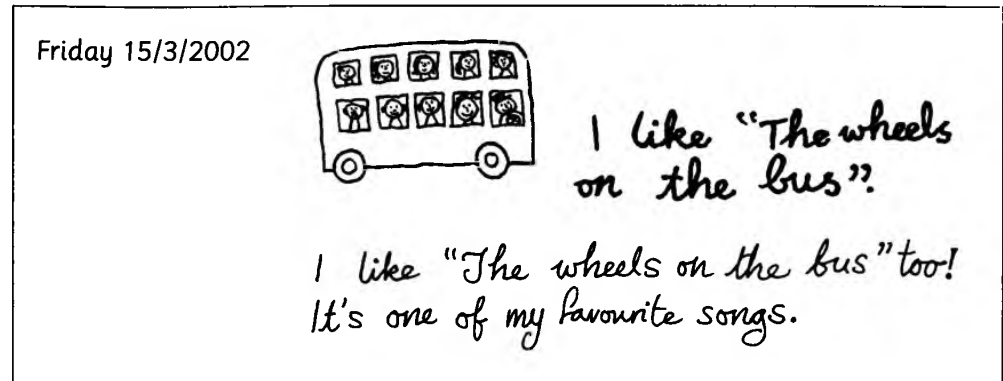 Friday 15/3/2002
I like "The wheels
on the bus".
I like "The wheels on the bus" too!
It's one of my favourite songs.